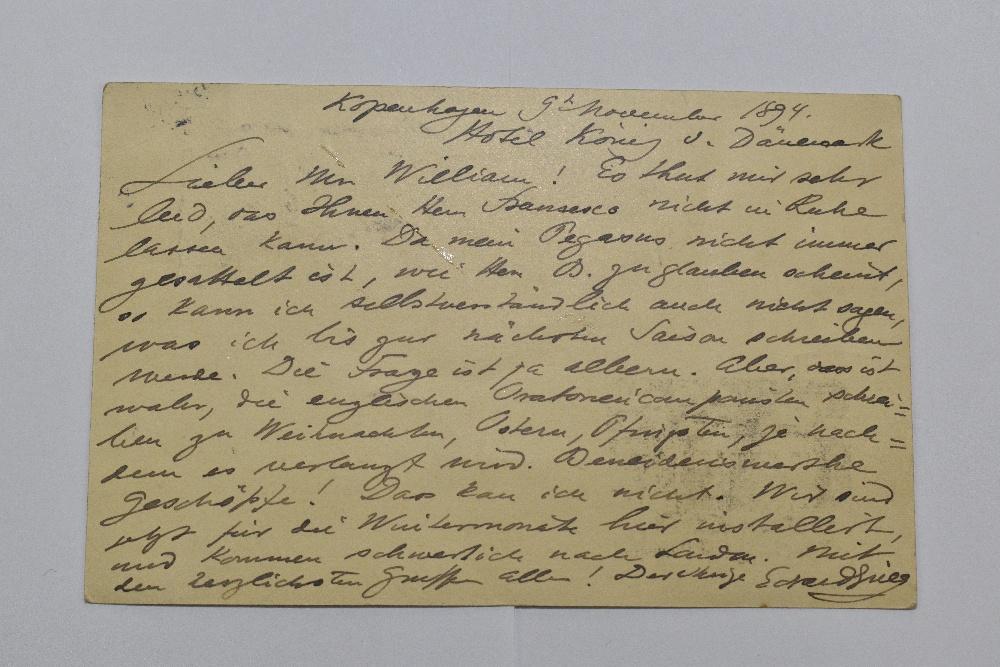 Kopenhagen 9t November 1894.
Hotel König v. Dänemark
Lieber Mr William! Es thut mir sehr
leid, das Ihnen Herr nicht in Ruhe
lassen kann. Da mein Pegasus nicht immer
gesattelt ist, wie Herr B. zu glauben scheint,
so kann ich selbstverständlich auch nicht sagen,
was ich bis zur nächsten Saison schreiben
werde. Die Frage ist ja albern. Aber, das ist
wahr, die englischen Oratoriencomponisten schrei=
ben zu Weihnachten, Ostern, Pfingsten, je nach=
dem es verlangt wird. Beneidenswerthe
Geschöpfe! Das kan ich nicht. Wir sind
jetzt für die Wintermonate hier installiert,
und kommen schwerlich nach London. Mit
den herzlichsten Grüssen allen! Der Ihrige Edvard Grieg